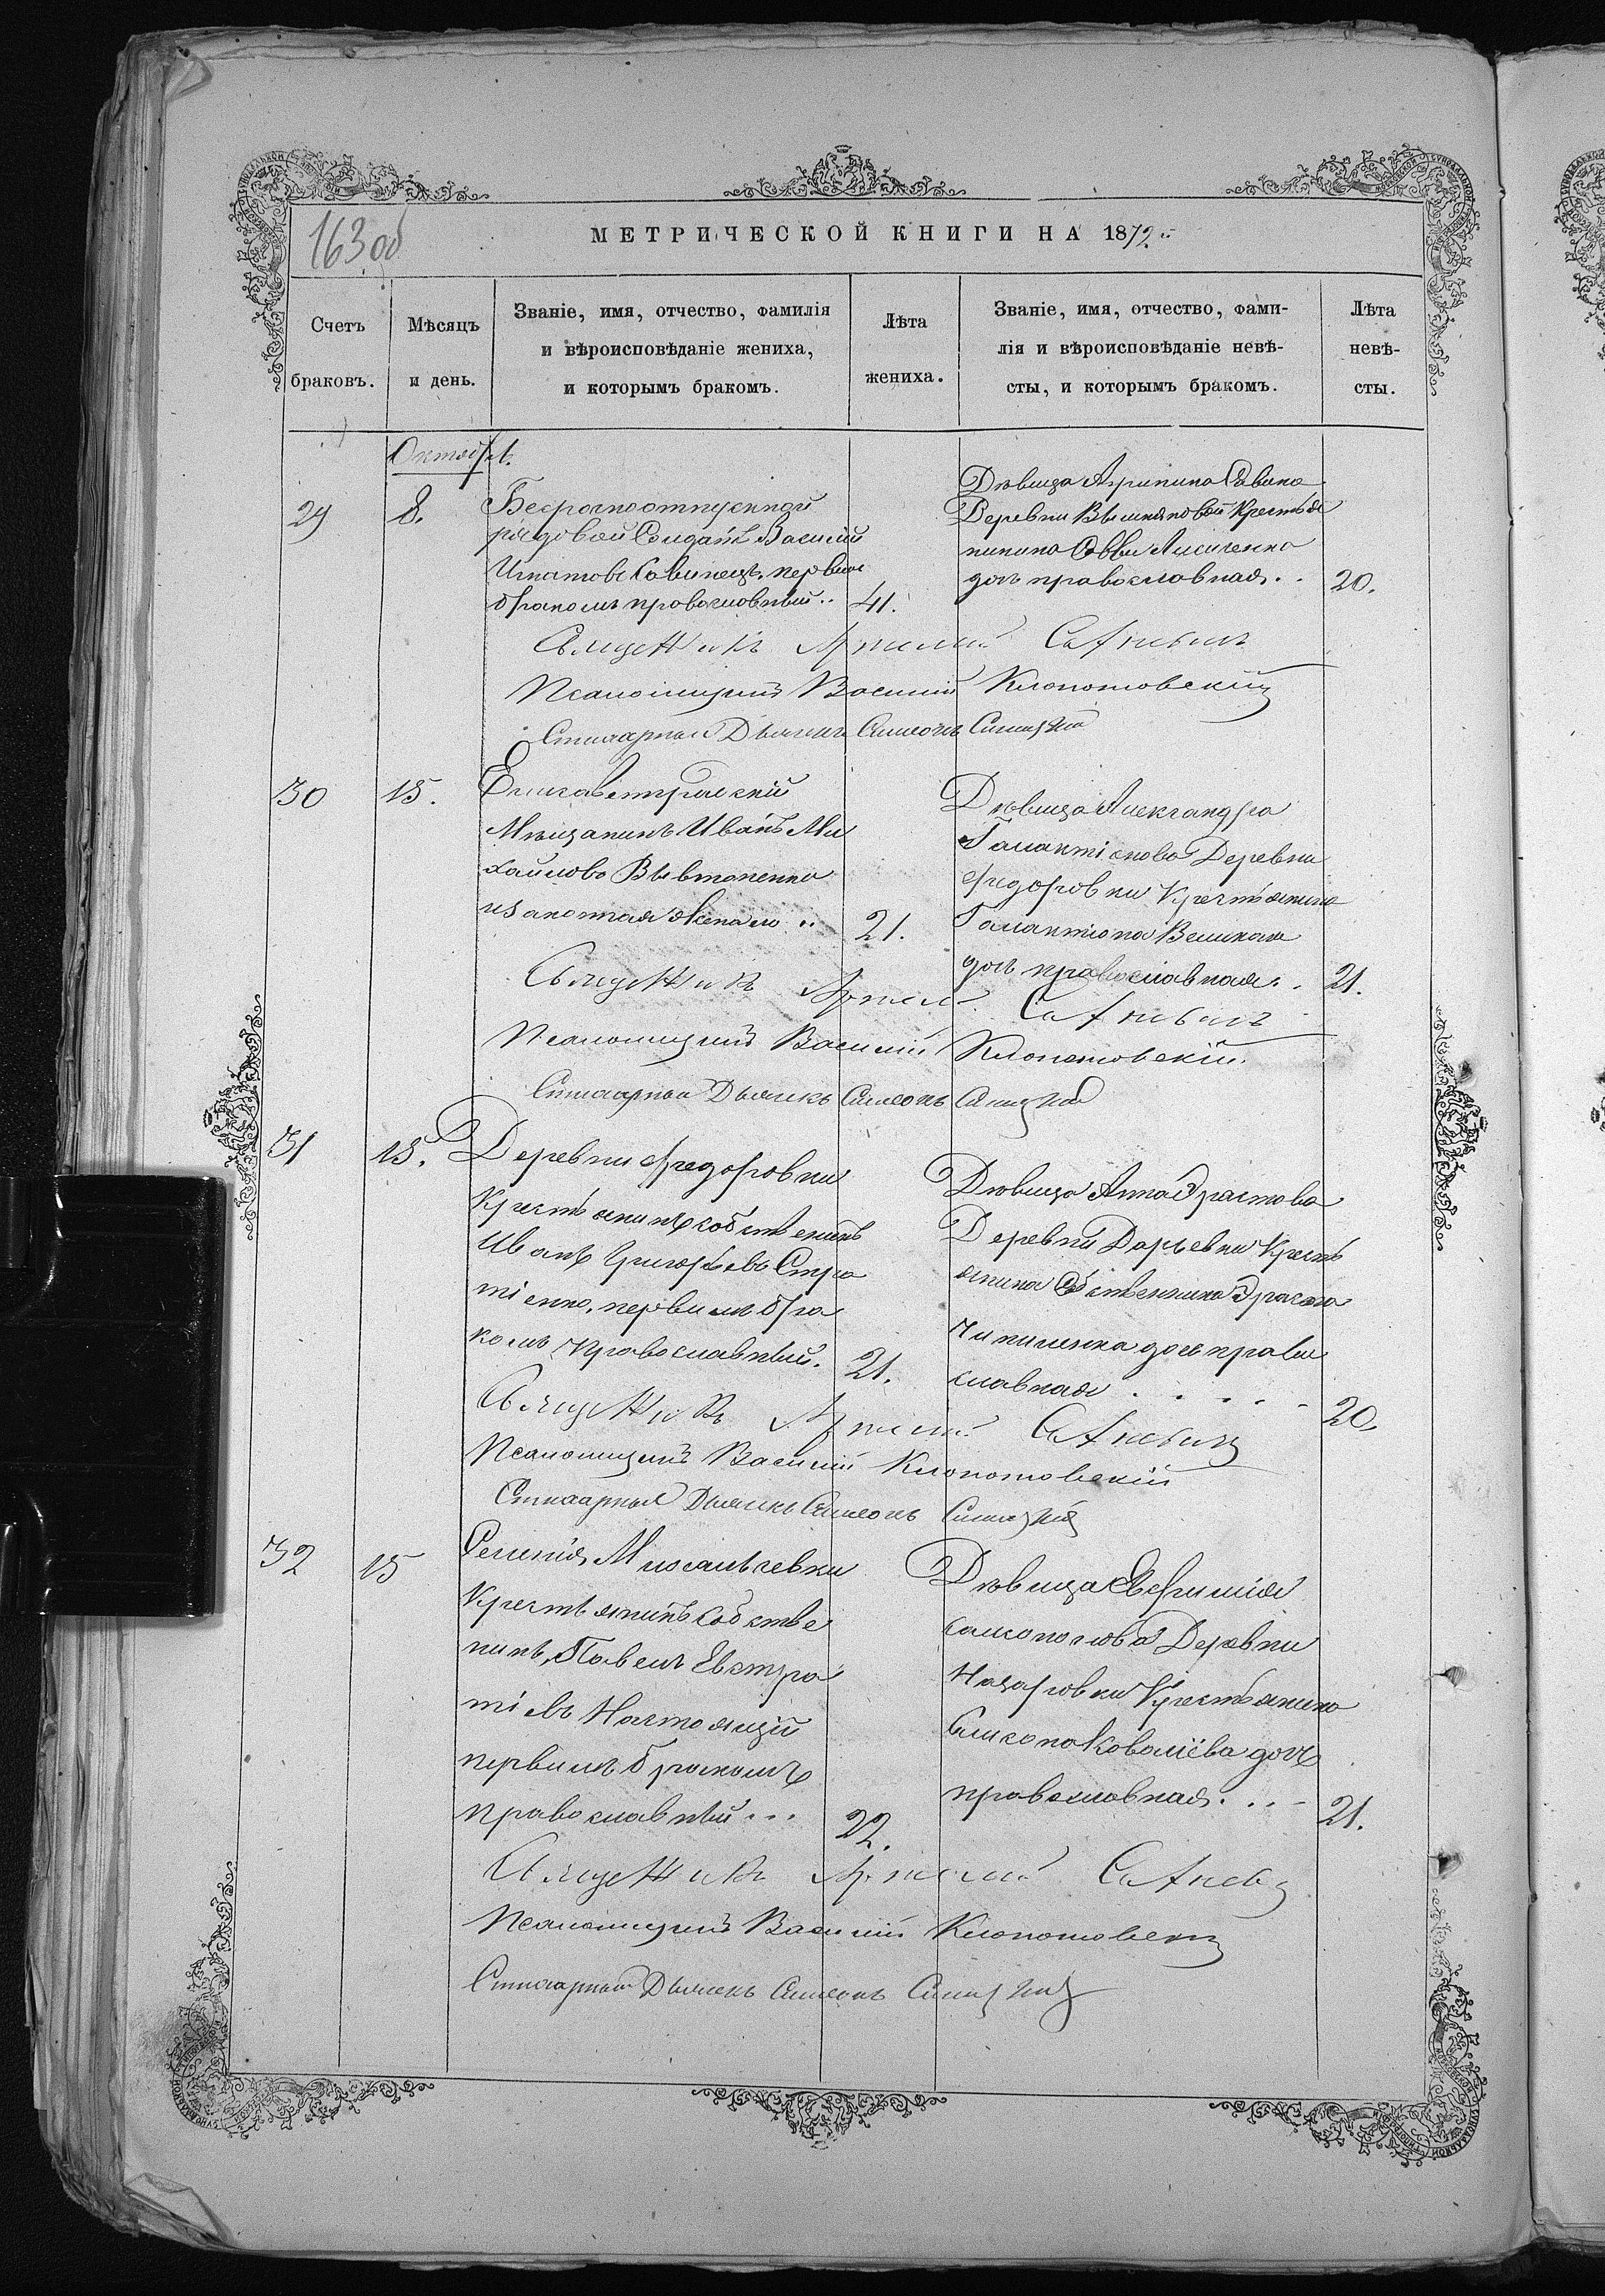 163 об
МЕТРИЧЕСКОЙ КНИГИ НА 1872
Счетъ браковъ.
Мѣсяцъ и день.
Званіе, имя, отчество, фамилія
и вѣроисповѣданіе жениха,
и которымъ бракомъ.
Лѣта жениха.
Званіе, имя, отчество, фами-
лія и вѣроисповѣданіе невѣ-
сты, и которымъ бракомъ.
Лѣта невѣ-
сты.
Октябрь.
29
8.
Безсрочноотпускной
рядовой Солдатъ Василій
Игнатовъ Савинецъ, первымъ
бракомъ православный..
41.
Дѣвица Агрипина Савина
Деревни Крестья
нина Саввы Лисиченка
дочь православная..
20.
Священникъ
Псаломщикъ Василій Клопотовскій
Стихарный Дьячекъ Симеонъ
30
15.
Елисаветградскій
Мѣщанинъ Иванъ Ми
хайловъ
21.
Дѣвица Александра
Галактіонова Деревни
Федоровки Крестьянина
Галактіона
дочь православная..
21.
Священникъ
Псаломщикъ Василій Клопотовскій.
Стихарный Дьячекъ Симеонъ
31
15.
Деревни Федоровки
Крестьянинъ собственникъ
Иванъ Григорьевъ Стра
тіенко, первымъ бра
комъ Православный.
21.
Дѣвица Анна Эрастова
Деревни Дарьевки Кресть
янина Собственника Эраста
Чипиленка дочь право
славная . . . .
20.
Священникъ
Псаломщикъ Василій Клопотовскій
Стихарный Дьячекъ Симеонъ
32
15
Селенія
Крестьянинъ Собстве
никъ, Павелъ Евстра
тіевъ Настоящій
первымъ бракомъ
православный...
22.
Дѣвица Евфимія
Деревни
Назаровки Крестьянина
Ковалёва дочь
православная...
21.
Священникъ
Псаломщикъ Василій
Стихарный Дьячекъ Симеонъ